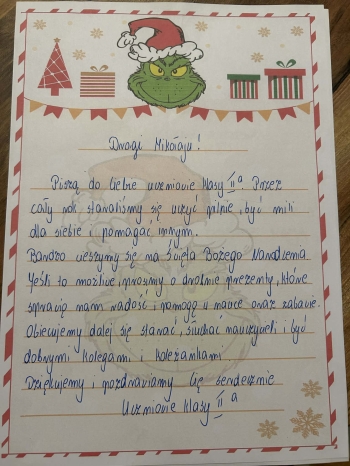 Drogi Mikołaju!
Piszą do Ciebie uczniowie klasy II a. Przez
cały rok staraliśmy się uczyć pilnie, być mili
dla siebie i pomagać innym.
Bardzo cieszymy się na Święta Bożego Narodzenia
Jeśli to możliwe, prosimy o drobne prezenty, które
sprawią nam radość i pomogą w nauce oraz zabawie.
Obiecujemy dalej się starać, słuchać nauczycieli i być
dobrymi kolegami i koleżankami.
Dziękujemy i pozdrawiamy Cię serdecznie
Uczniowie klasy II a